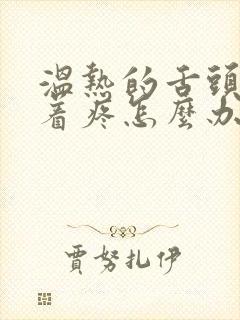 溫熱的舌頭
着疼怎麼办
賈努扎伊